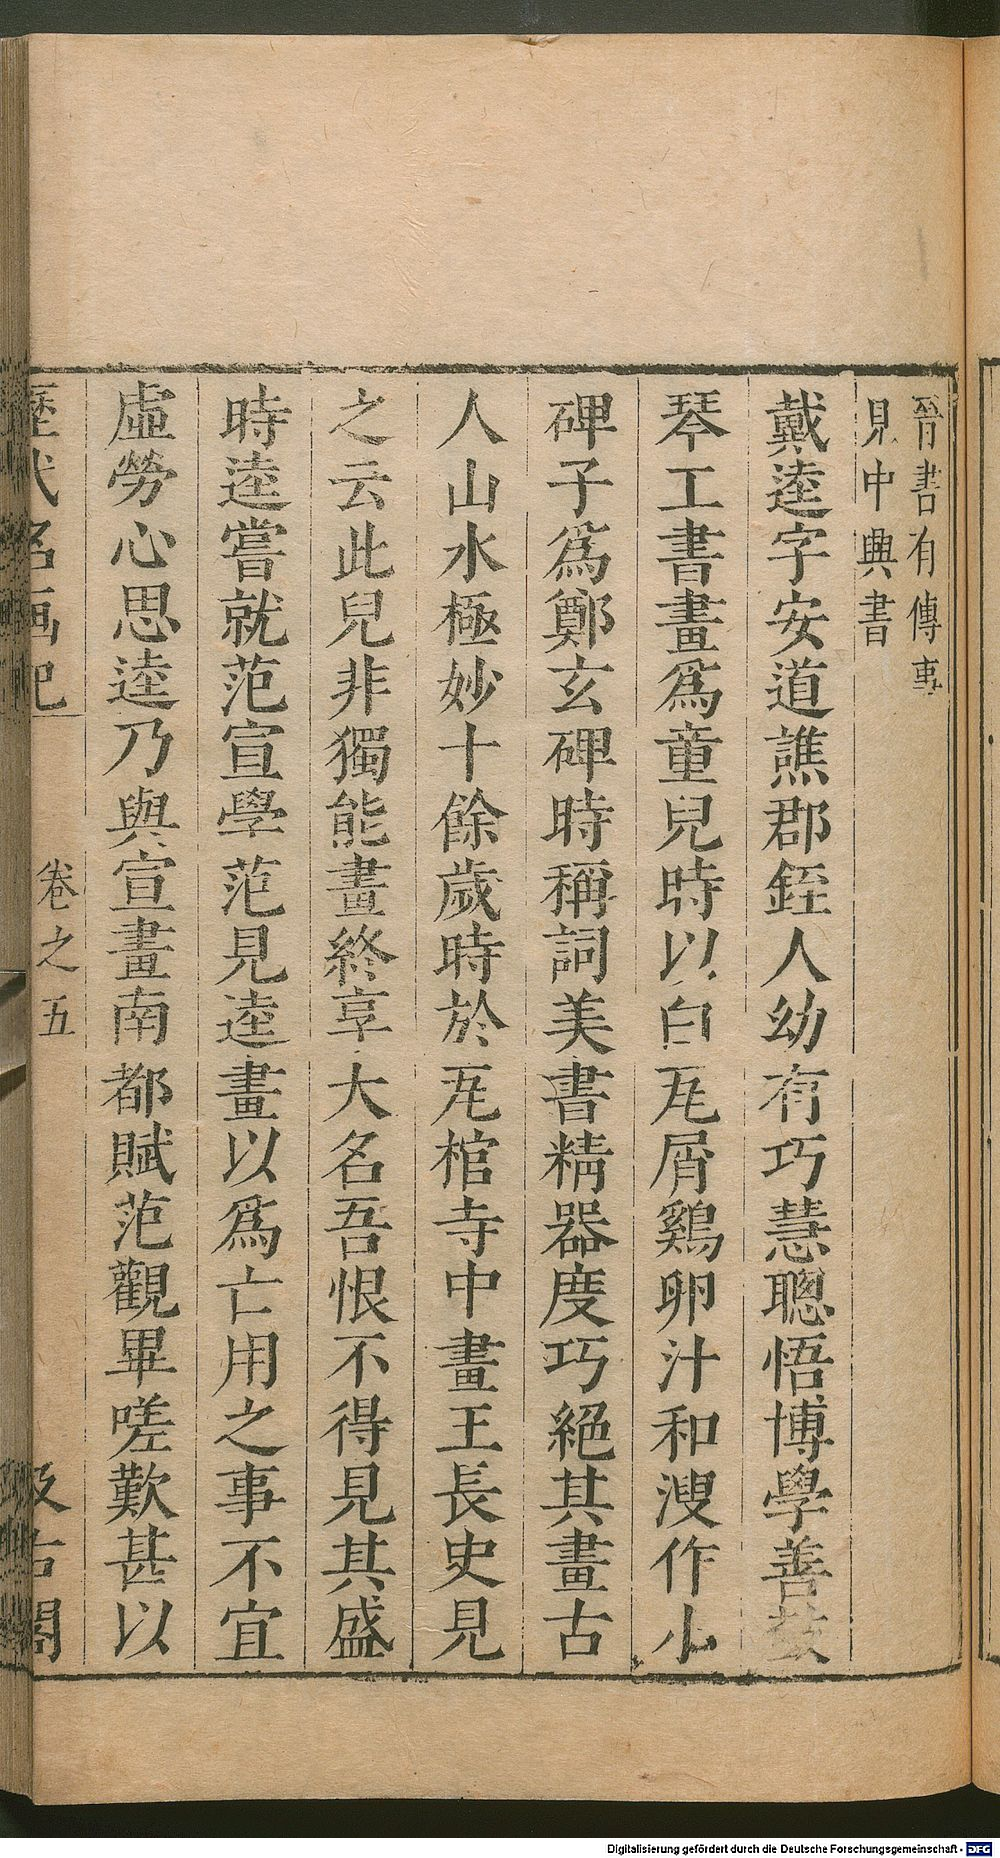 晉書有傳事
見中興書
戴逵字安道譙郡銍人幼有巧慧聰悟博學善鼓
琴工書畫爲童兒時以白瓦屑鷄卵汁和溲作小
碑子爲鄭玄碑時稱詞美書精器度巧絕其畫古
人山水極妙十餘歲時於瓦棺寺中畫王長史見
之云此兒非獨能畫終享大名吾恨不得見其盛
時逵嘗就范宣學范見逵畫以爲亡用之事不宜
虛勞心思逵乃與宣畫南都賦范觀畢嗟歎甚以
歷代名画記
卷之五
汲古閣
Digitalisierung gefördert durch die Deutsche Forschungsgemeinschaft - DFG